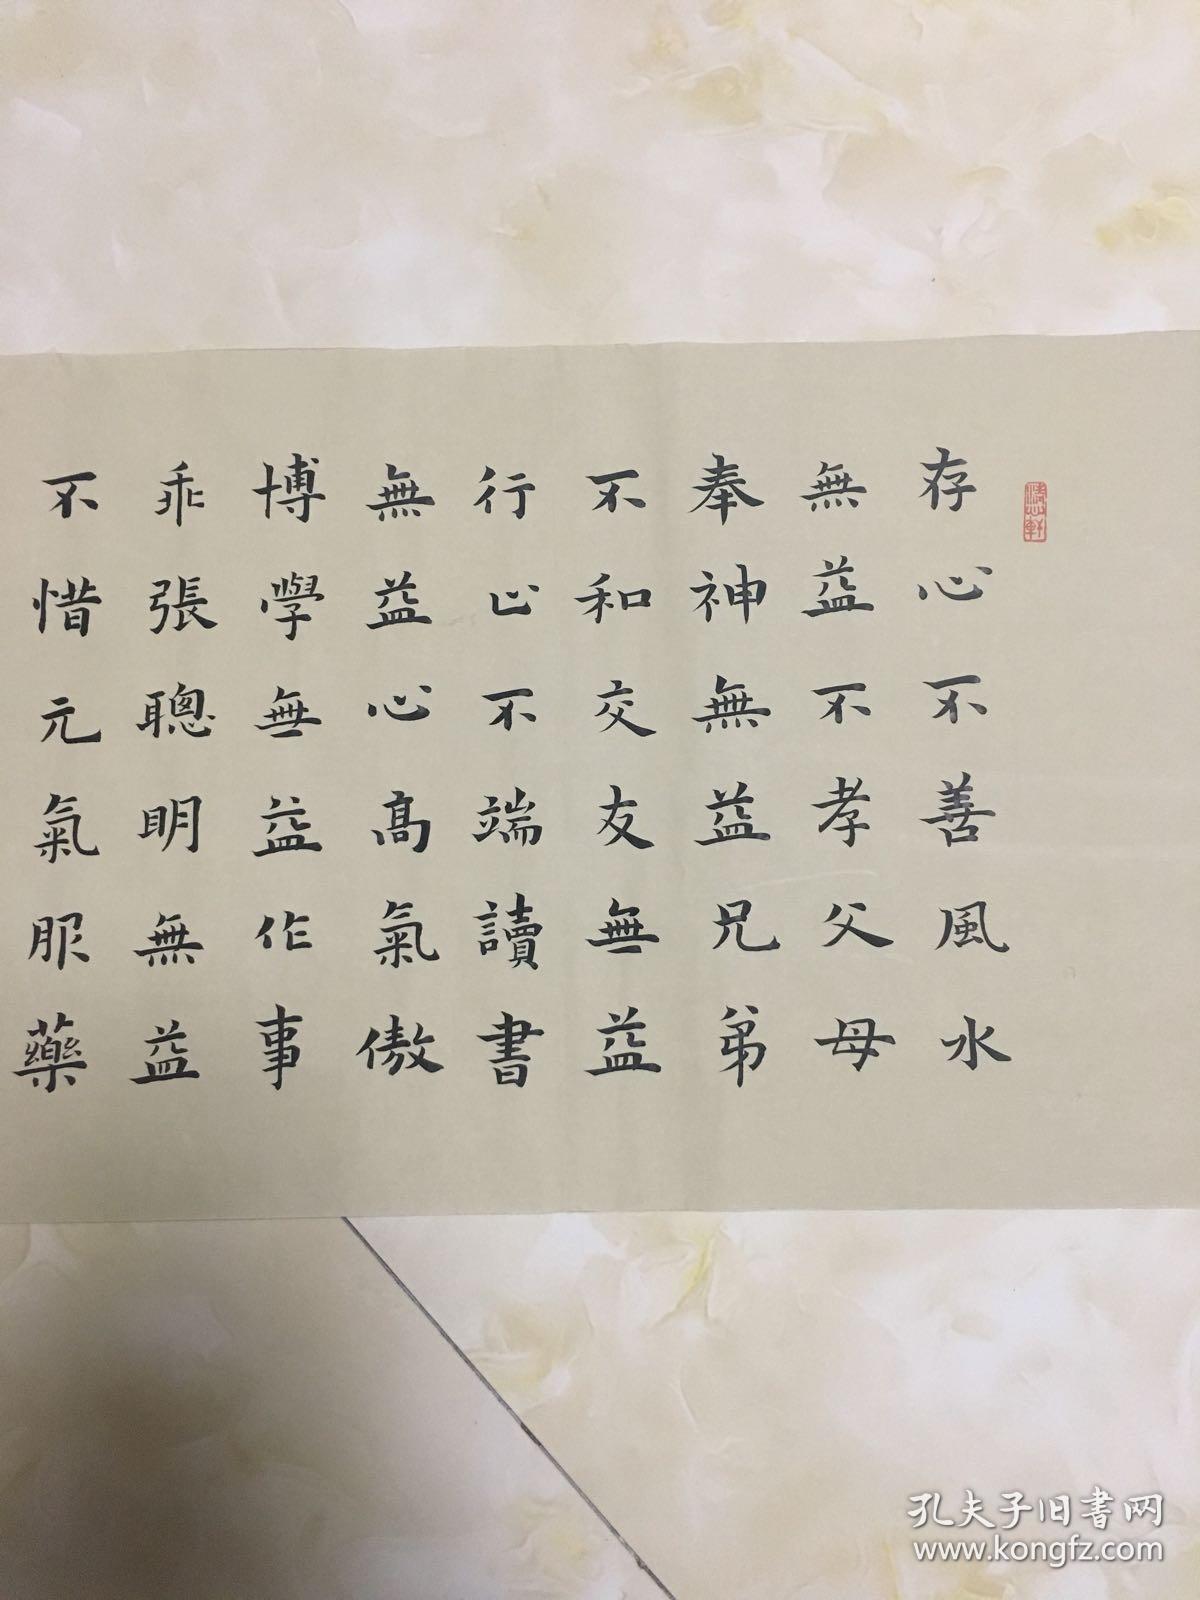 存心不善風水
無益不孝父母
奉神無益兄弟
不和交友無益
行止不端讀書
無益心高氣傲
博學無益作事
乖張聰明無益
不惜元氣服藥
孔夫子旧書网
www.kongfz.com